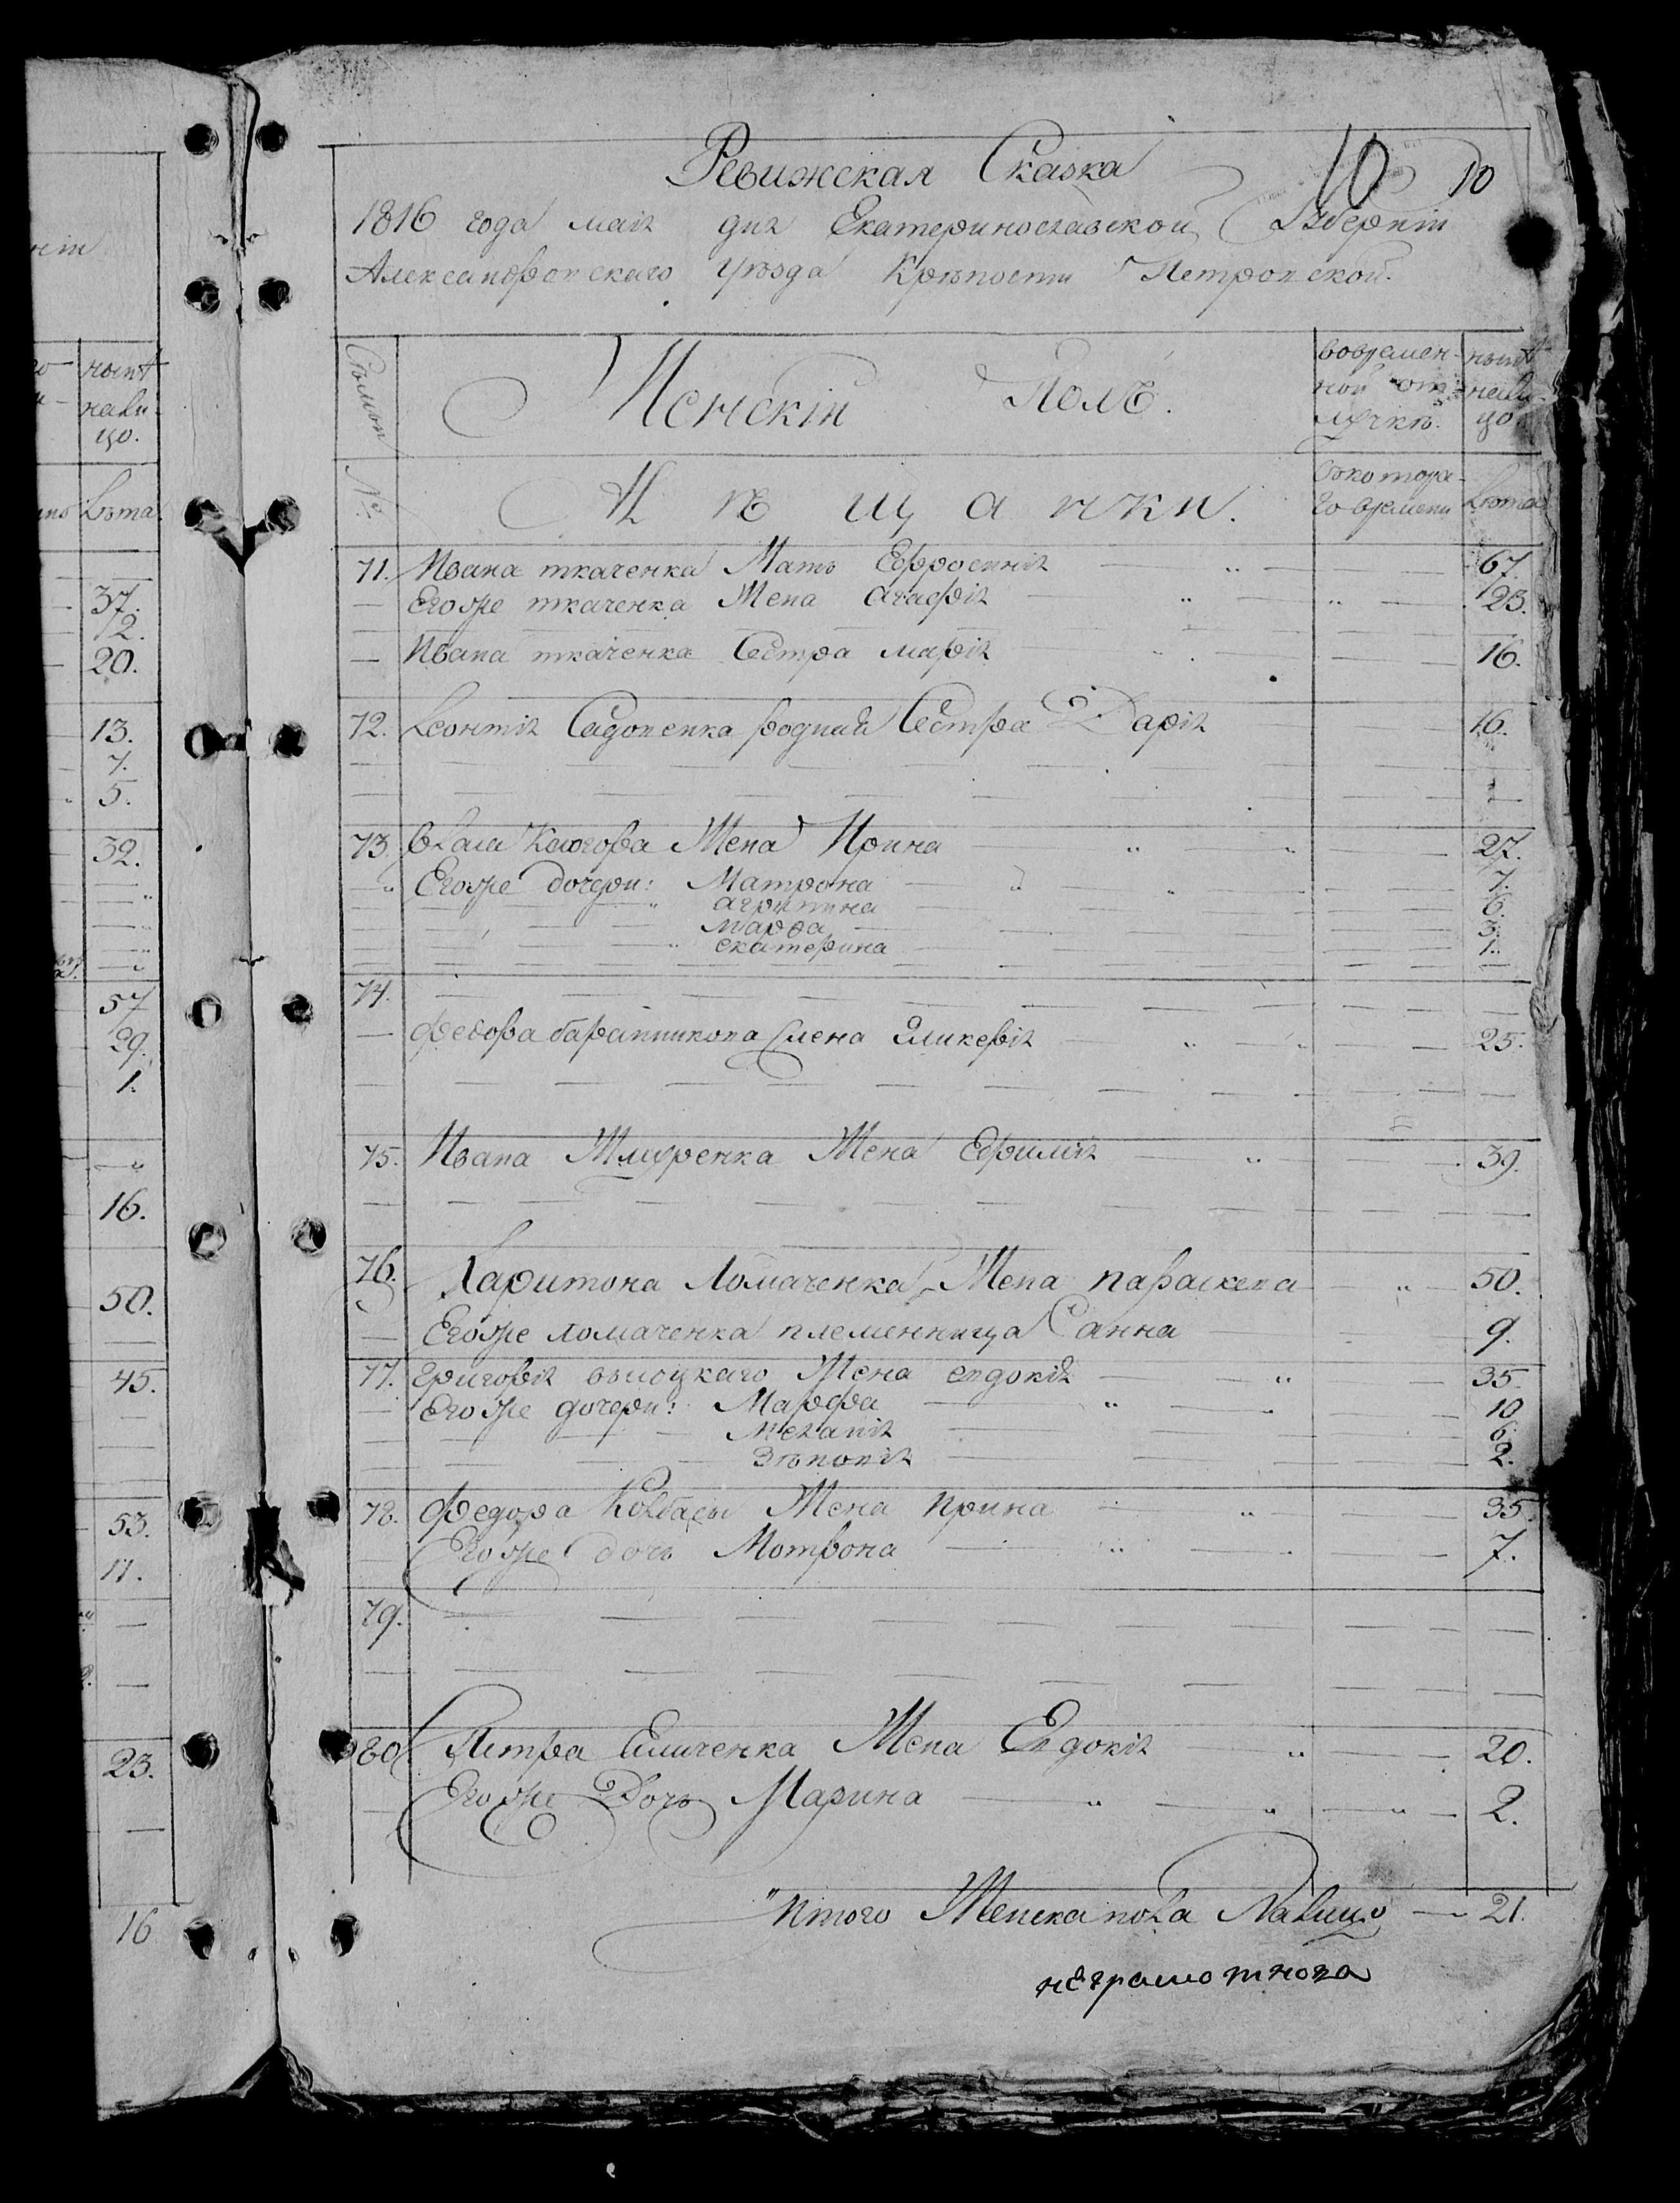 Ревижская Сказка
10 10
1816 года маія дня Екатеринославской Губерніи
Александровскаго Уѣзда Крѣпости Петровской.
Семьи
Женскій Полъ.
вовремен-
ной от-
лучкѣ.
нынѣ
нали-
цо
№
Мѣщанки.
съкотора-
го времени
Лѣта
71. Ивана ткаченка Мать Ефросинія 67.
Егоже ткаченка Жена Агафія 23.
Ивана ткаченка Сестра марія 16.
72. Леонтія Садовенка родная Сестра Дарія 16.
73. Власа Жена Ирина 27.
Егоже дочери: Матрона 7.
агрипина 6.
марѳа 3.
екатерина 1.
74.
Федора баранникова Жена Гликерія 25.
75. Ивана Жмуренка Жена Ефимія 39.
76. Харитона Ломаченка Жена параскева 50.
Егоже ломаченка племенница анна 9.
77. Григорія высоцкаго Жена евдокія 35
Егоже дочери: Марфа 10
меланія 6.
Зѣновія 2.
78. Федора Ковбасы Жена ирина 35
Егоже дочь Мотрона 7.
79.
80. Петра Жена Евдокія 20.
Егоже Дочь Марина 2.
Итого Женска пола Налицо 21.
неграмотнова
нынѣ
нали-
цо.
Лѣта.
37.
12.
20.
13.
7.
5.
32.
57
29.
1.
16.
50.
45.
53.
11.
23.
16